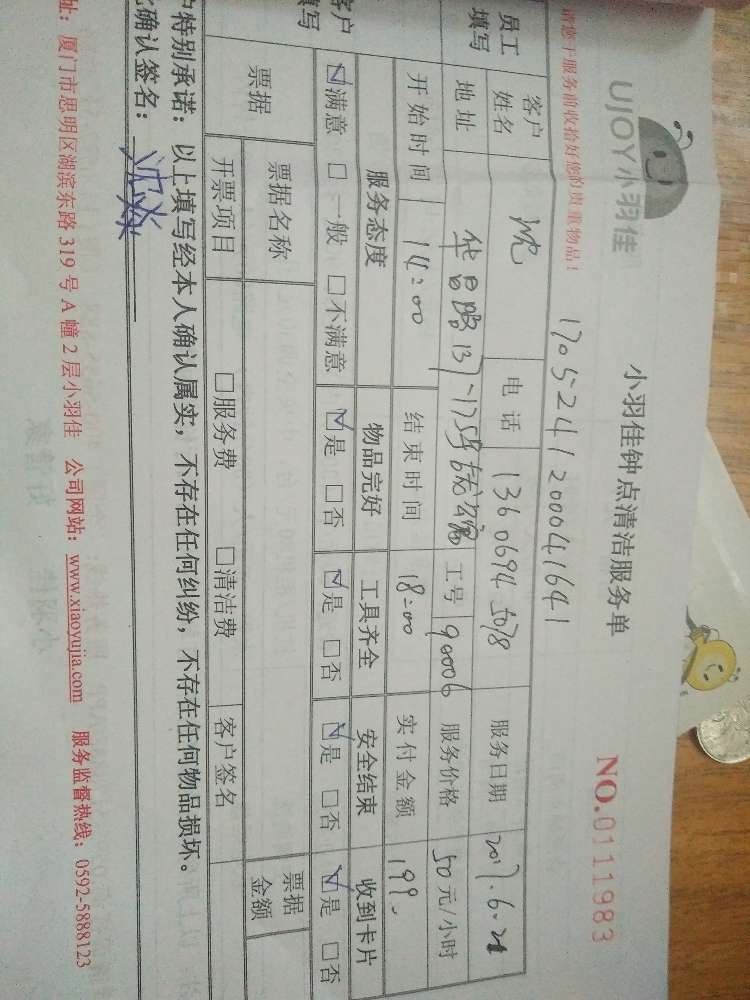 UJOY小羽佳
小羽佳钟点清洁服务单
NO.0111983
请您于服务前收拾好您的贵重物品!
1705241200041641
员工
填写
客户
姓名
沈
电话
13606945078
服务日期
2017.6.21
地址
工号
90006
服务价格
50元/小时
开始时间
14:00
结束时间
18:00
实付金额
199.
客户
填写
服务态度
物品完好
工具齐全
安全结束
收到卡片
☑满意 □一般 □不满意
☑是 □否
☑是 □否
☑是 □否
☑是 □否
票据
票据名称
票据
金额
开票项目
□服务费 □清洁费
客户签名
户特别承诺:以上填写经本人确认属实,不存在任何纠纷,不存在任何物品损坏。
确认签名:
址:厦门市思明区湖滨东路319号A幢2层小羽佳 公司网站:www.xiaoyujia.com 服务监督热线:0592-5888123